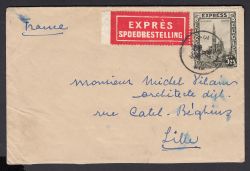 France
EXPRÈS
SPOEDBESTELLING
EXPRESS
Monsieur Michel Vilain
architecte dipl.
rue Catel-Béghin
Lille